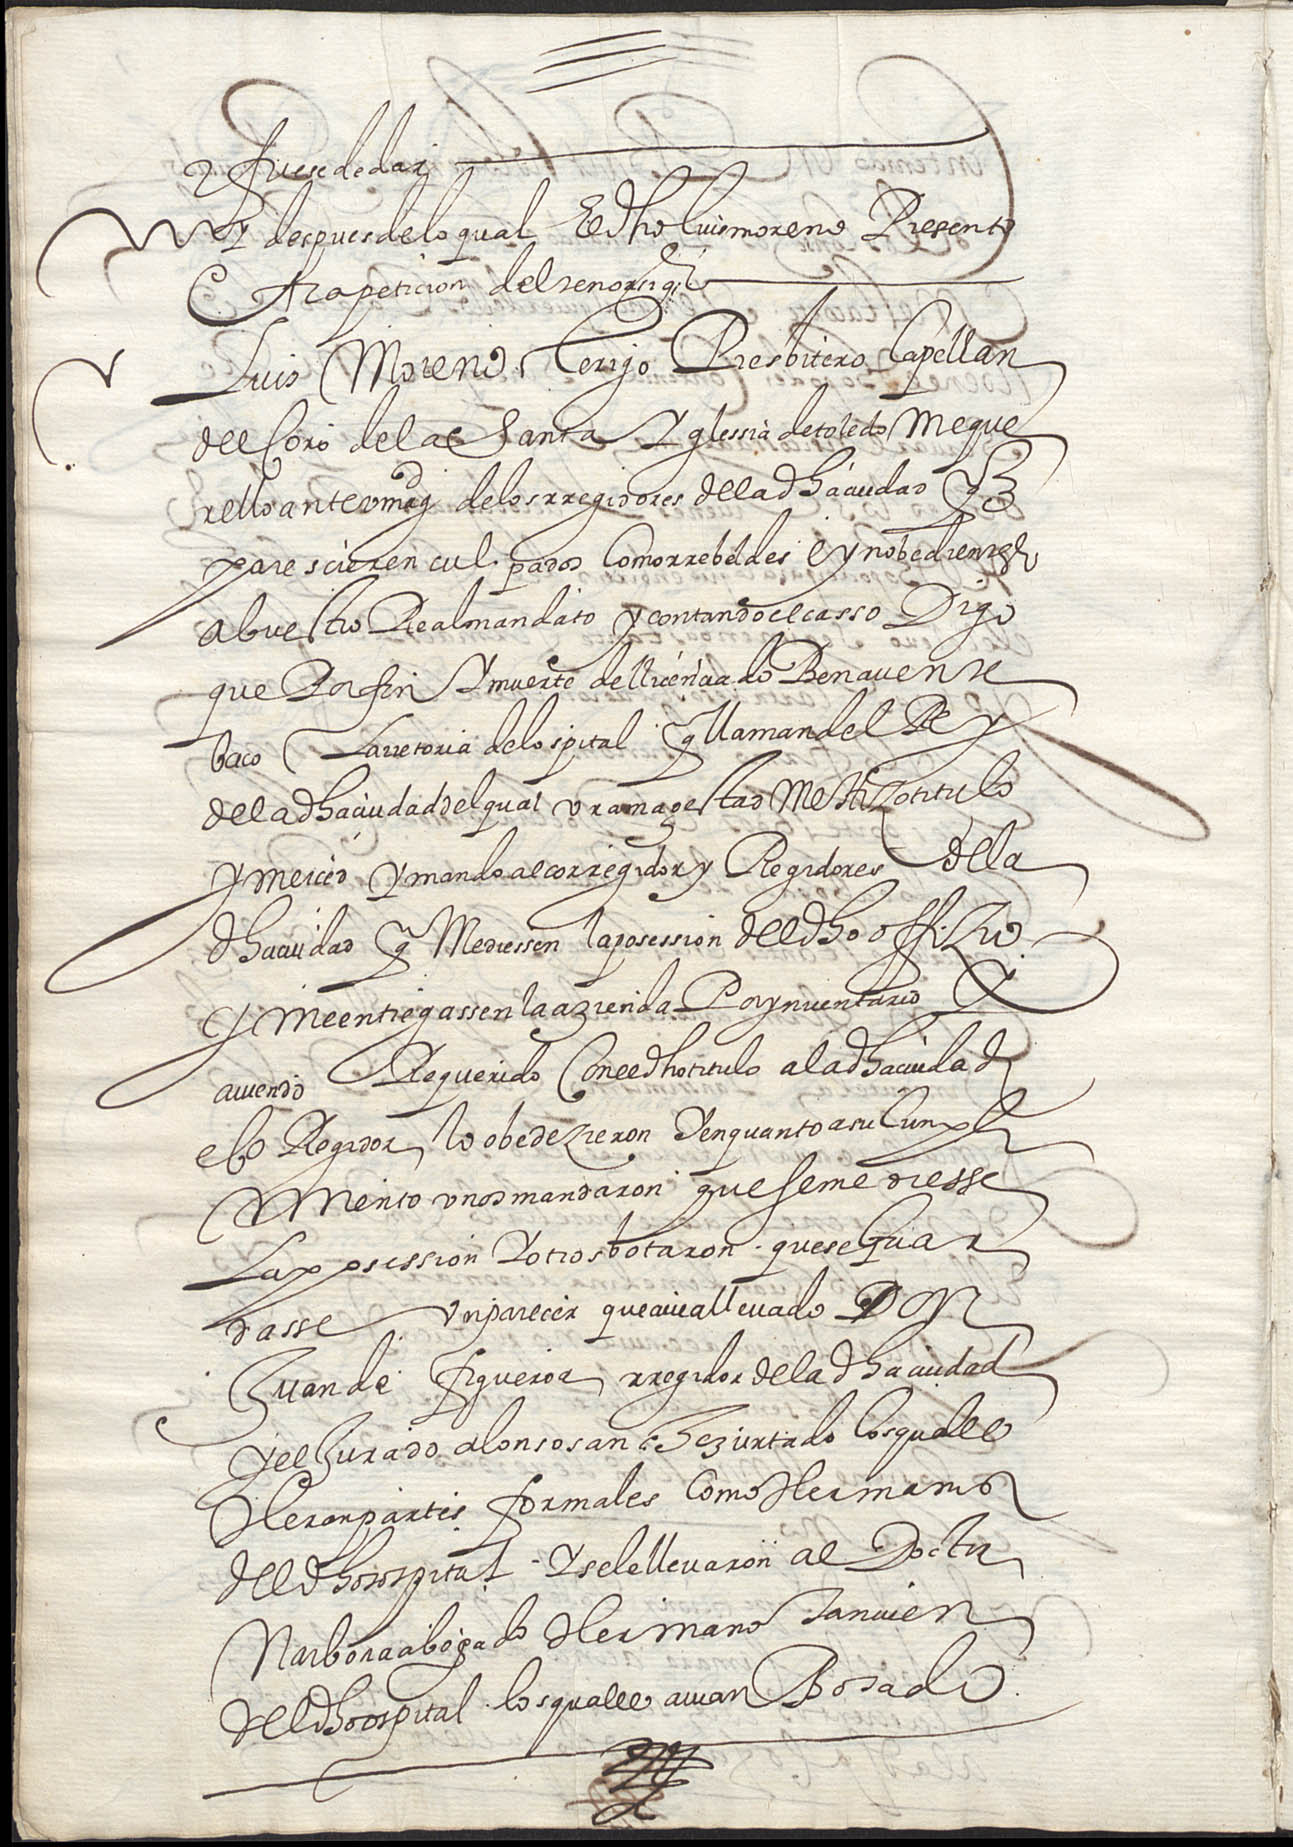 y fuese de dar
y despues de lo qual El dho luis moreno Presento
otra peticion del tenor sigte
Luis Moreno Clerigo Presbitero Capellan
del Coro de la Santa Yglessia de toledo Me que
rello ante vmag de los rregidores de la dha ciudad q
parescieren culpados Como rrebeldes e ynobedientes
a buestro Real mandato y contando el casso Digo
que Por fin Y muerte del licenciado Benauente
baco La retoria del ospital q llaman del Rey
de la dha ciudad del qual vra magestad Me hizo titulo
y merced y mando al corregidor y Regidores de la
dha ciudad q Me diessen la posession del dho offizio
y me entregassen la azienda Por ynuentario Y
auiendo Requerido Con el dho titulo a la dha ciudad
e los Regidores lo obedezieron Y en quanto a su Cunpli
Miento vnos mandaron que se me diesse
La possession Y otros botaron que se Guar
dasse vn parecer que auia lleuado Don
Juan de figueroa rregidor de la dha ciudad
y el Jurado alonso sanchez jurtado los quales
Heran partes formales Como Hermanos
del dho ospital Y se le lleuaron al Doctor
Narbona abogado Hermano tanvien
del dho ospital los quales auian Botado